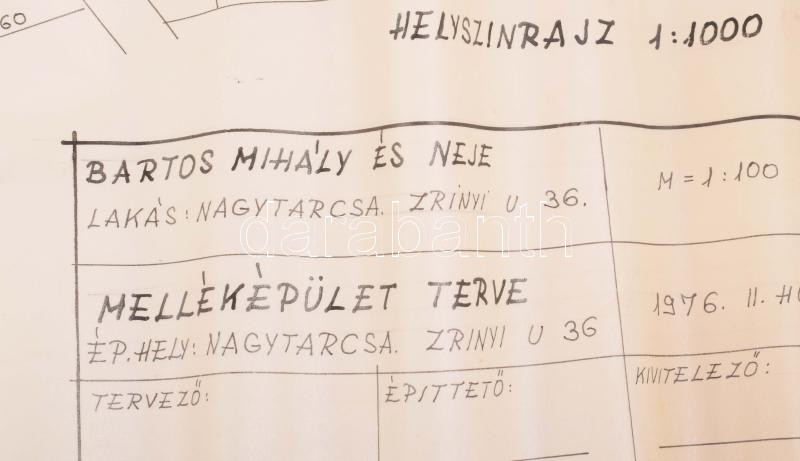 60
HELYSZINRAJZ 1:1000
BARTOS MIHÁLY ÉS NEJE
LAKÁS: NAGYTARCSA. ZRÍNYI U 36.
M = 1:100
MELLÉKÉPÜLET TERVE
ÉP. HELY: NAGYTARCSA. ZRINYI U 36
1976. II. HÓ
TERVEZŐ:
ÉPITTETŐ:
KIVITELEZŐ:
darabanth